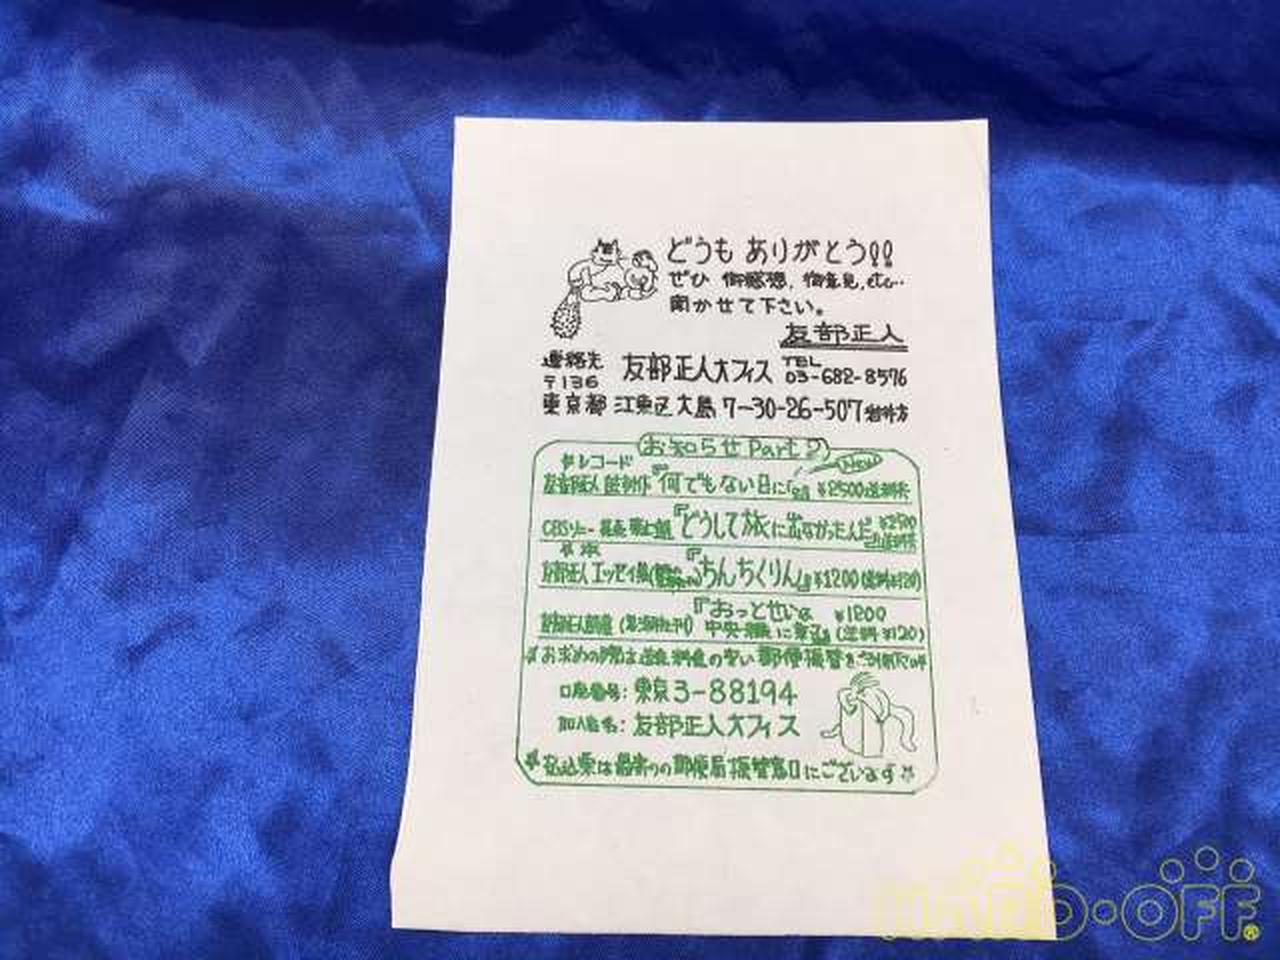 どうも ありがとう!!
ぜひ 御感想、御意見、etc…
聞かせて下さい。
友部正人
連絡先 友部正人オフィス TEL
〒136 03-682-8576
東京都 江東区 大島 7-30-26-507
お知らせ Part 2
レコード New
友部正人 『何でもない日に』 ¥2500 送料共
CBSソニー 『どうして旅に出なかったんだ ¥2500
友部正人 エッセイ集 『ちんちくりん』 ¥1200 (送料¥120)
『おっとせいは ¥1200
友部正人 中央線に乗る』 (送料 ¥120)
お求めの際は 郵便振替を
口座番号: 東京3-88194
加入者名: 友部正人オフィス
払込票は最寄りの郵便局振替窓口にございます
HARD・OFF®